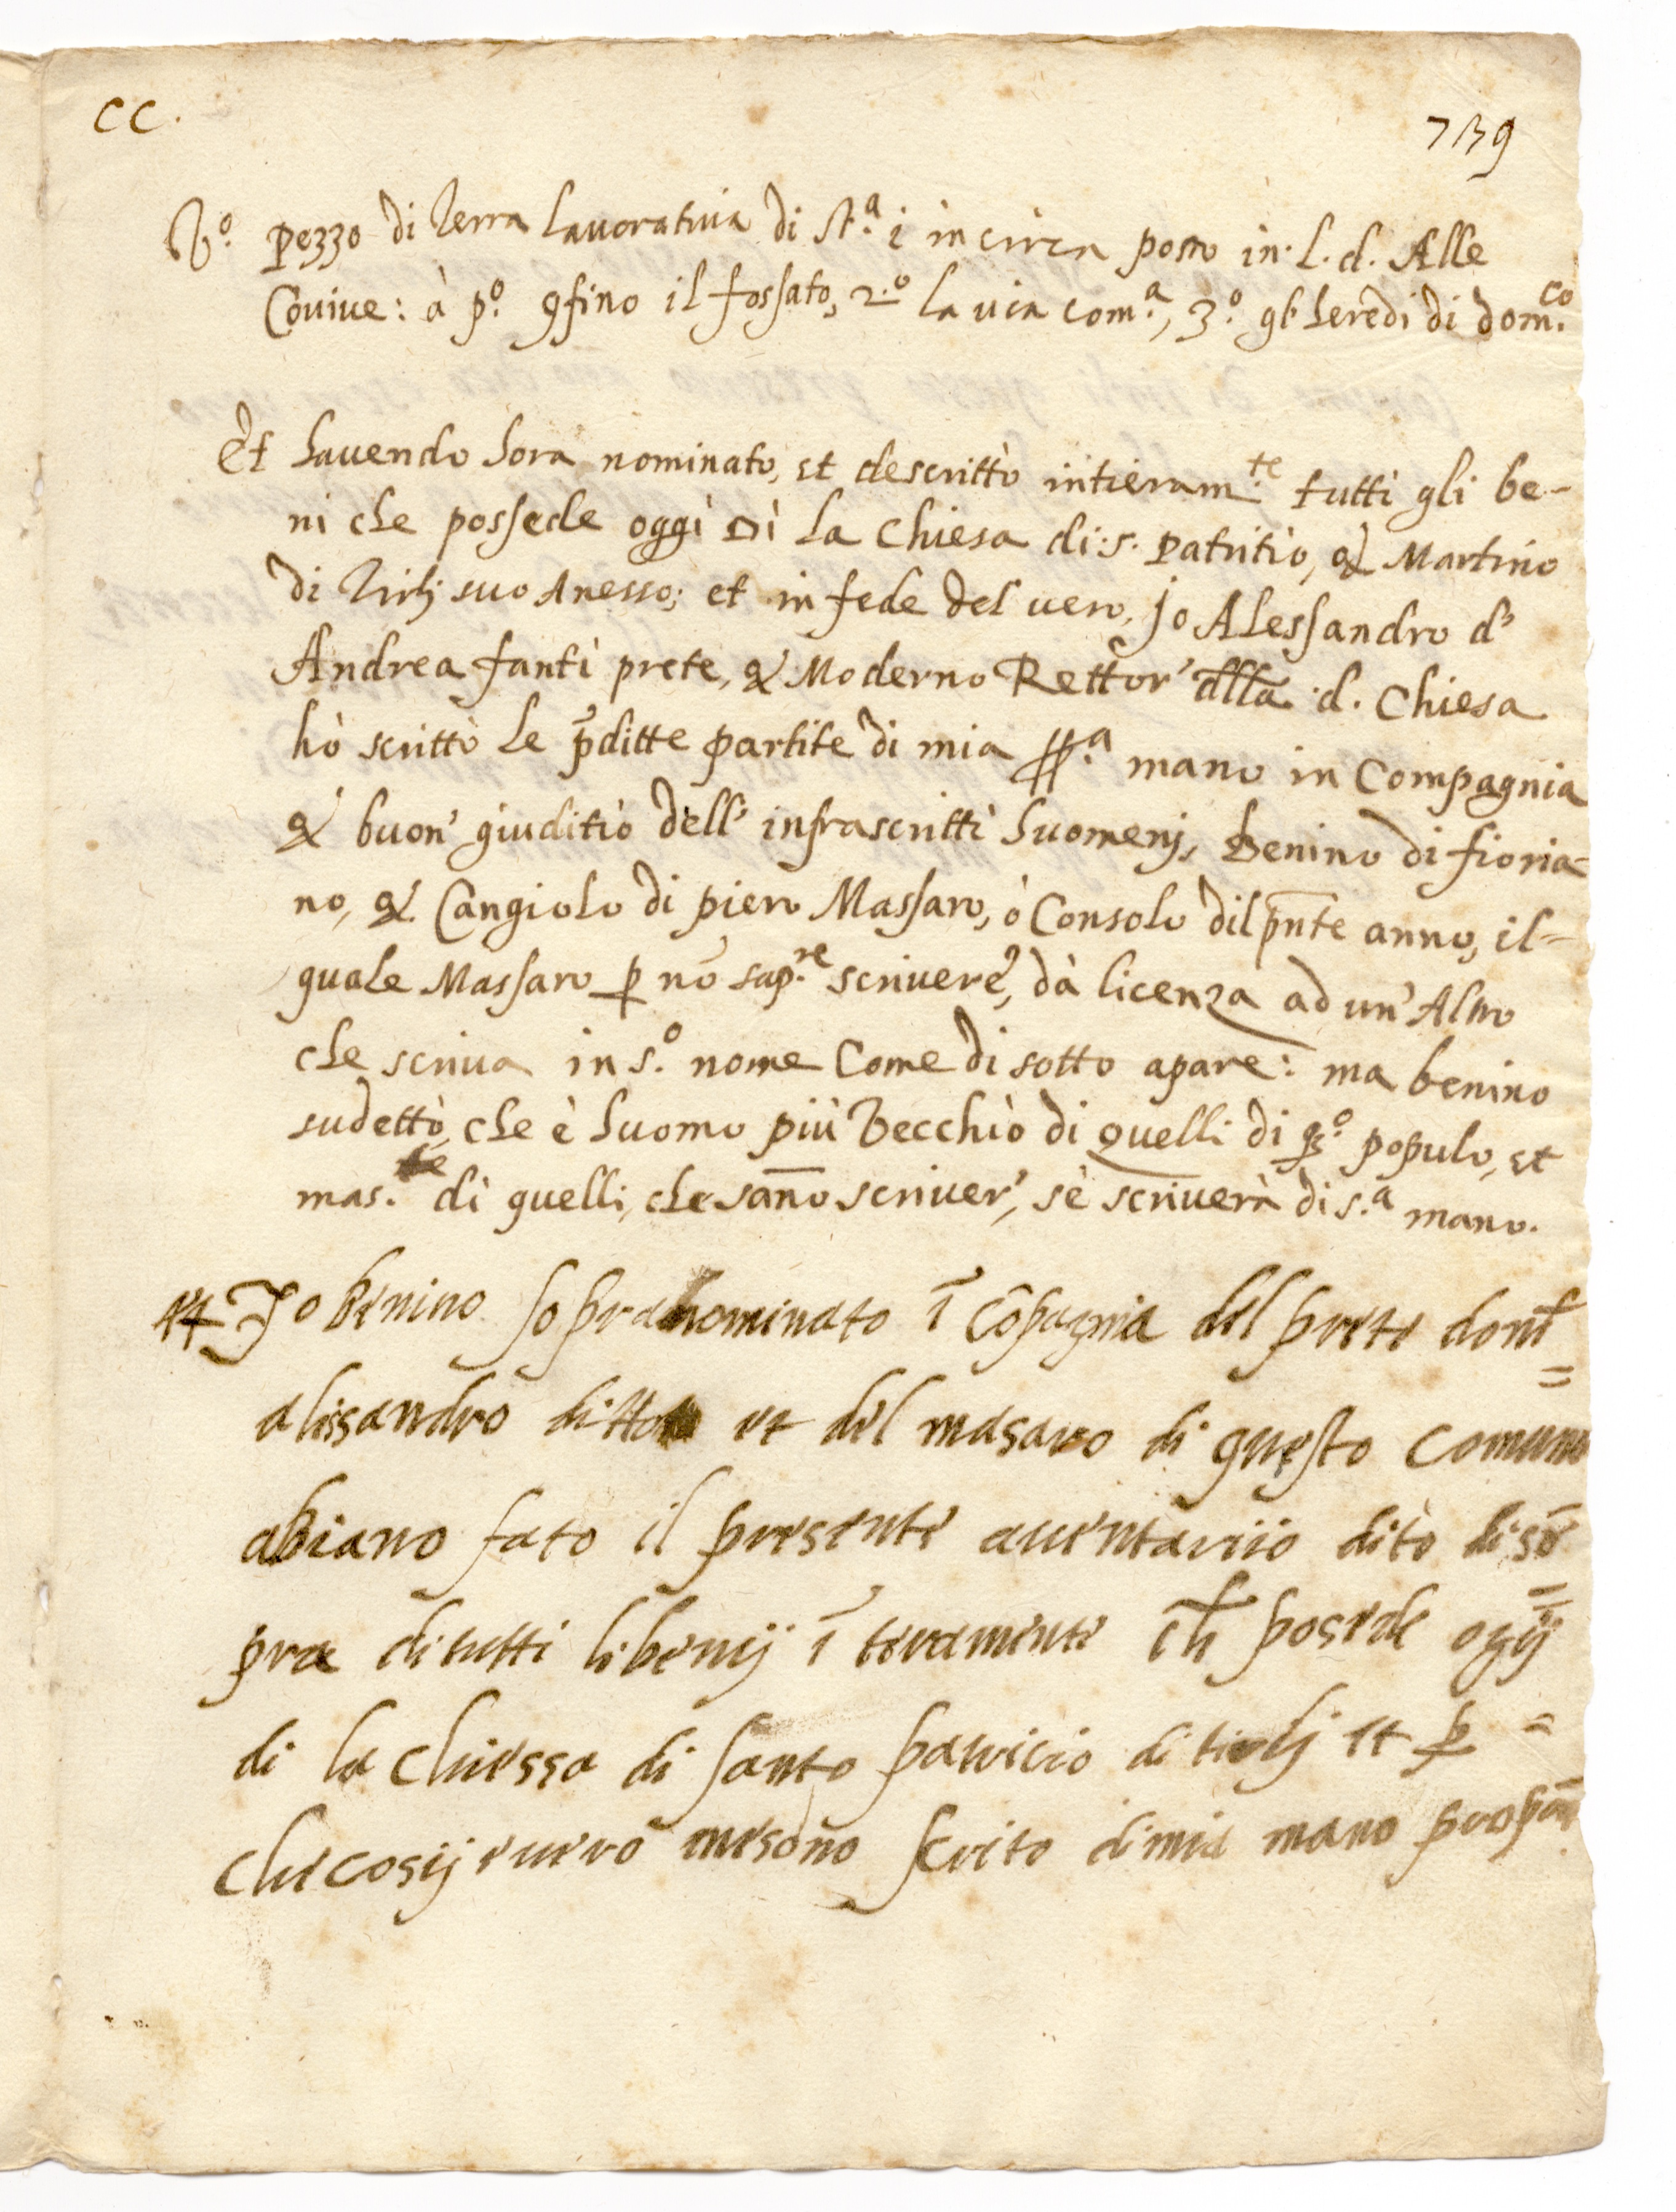 CC.
739
V.º pezzo di Terra Lauoratiuia di st.ª i in circa posto in. L. d. Alle
Coviue: à p.º 9fino il fossato, 2.º la uia com.ª, 3.º gl' heredi di dom.co
Et hauendo hora nominato, et descritto intieram.te tutti gli be-
ni che possede oggi Dì la Chiesa di. s. Patritio, & Martino
di Tirlj suo Anesso; et in fede del uero, jo Alessandro d'
Andrea fanti prete, & Moderno Rettor' dlla .d. Chiesa
hò scritto le p̄ditte partite di mia pp.ª mano in Compagnia
& buon' giuditio dell' infrascritti huomenj, Benino di fioria=
no, & Cangiolo di piero Massaro, ò Consolo dil pn̄te anno, il=
quale Massaro p nō sap.re scriuere, dà licenza ad un' Altro
che scriua in s.º nome Come di sotto apare: ma benino
sudetto, che è huomo più Vecchiò di quelli di q.º populo, et
mas.te di quelli, che sanno scriuer', sè scriuerà di s.ª mano.
et Jo benino sopra nominato ī cōpagnia del prete dom̄
=
alissandro ditto et del masaro di questo comuno
abiano fato il presente auentariio ditò di sō
=
pra di tutti li benij ī teramente ch̄ posede ogij
di la chiessa di santo patricio di tirlj et p =
che cosij e uero mesono scrito di mia mano propia